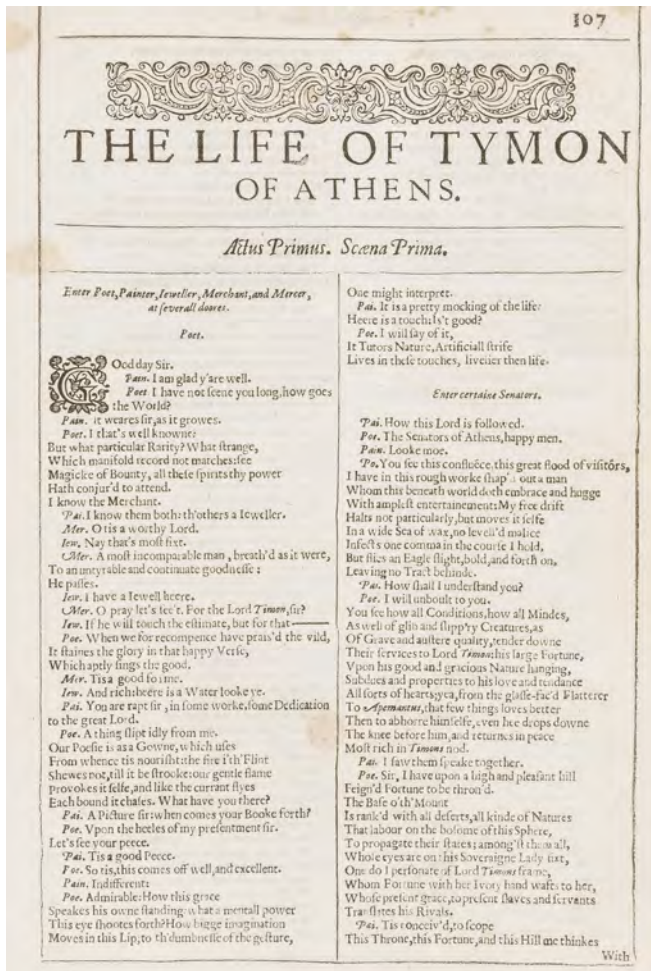 107
THE LIFE OF TYMON
OF ATHENS.
Actus Primus. Scæna Prima.
Enter Poet, Painter, Ieweller, Merchant, and Mercer,
at seuerall doores.
Poet.
GOod day Sir.
Pain. I am glad y'are well.
Poet. I haue not seene you long, how goes
the World?
Pain. It weares sir, as it growes.
Poet. I that's well knowne:
But what particular Rarity? What strange,
Which manifold record not matches: see
Magicke of Bounty, all these spirits thy power
Hath coniur'd to attend.
I know the Merchant.
Pai. I know them both: th'others a Ieweller.
Mer. O tis a worthy Lord.
Iew. Nay that's most fixt.
Mer. A most incomparable man, breath'd as it were,
To an vntyrable and continuate goodnesse:
He passes.
Iew. I haue a Iewell heere.
Mer. O pray let's see't. For the Lord Timon, sir?
Iew. If he will touch the estimate, but for that——
Poe. When we for recompence haue prais'd the vild,
It staines the glory in that happy Verse,
Which aptly sings the good.
Mer. Tis a good forme.
Iew. And rich: heere is a Water looke ye.
Pai. You are rapt sir, in some worke, some Dedication
to the great Lord.
Poe. A thing slipt idly from me.
Our Poesie is as a Gowne, which vses
From whence tis nourisht: the fire i'th'Flint
Shewes not, till it be strooke: our gentle flame
Prouokes it selfe, and like the currant flyes
Each bound it chases. What haue you there?
Pai. A Picture sir: when comes your Booke forth?
Poe. Vpon the heeles of my presentment sir.
Let's see your peece.
Pai. Tis a good Peece.
Poe. So tis, this comes off well, and excellent.
Pain. Indifferent:
Poe. Admirable: How this grace
Speakes his owne standing: what a mentall power
This eye shootes forth? How bigge imagination
Moues in this Lip, to th'dumbnesse of the gesture,
One might interpret.
Pai. It is a pretty mocking of the life:
Heere is a touch: Is't good?
Poe. I will say of it,
It Tutors Nature, Artificiall strife
Liues in these touches, liuelier then life.
Enter certaine Senators.
Pai. How this Lord is followed.
Poe. The Senators of Athens, happy men.
Pain. Looke moe.
Po. You see this confluēce, this great flood of visitōrs,
I haue in this rough worke shap'd out a man
Whom this beneath world doth embrace and hugge
With amplest entertainement: My free drift
Halts not particularly, but moues it selfe
In a wide Sea of wax, no leuell'd malice
Infects one comma in the course I hold,
But flies an Eagle flight, bold, and forth on,
Leauing no Tract behinde.
Pai. How shall I vnderstand you?
Poe. I will vnboult to you.
You see how all Conditions, how all Mindes,
As well of glib and slipp'ry Creatures, as
Of Graue and austere quality, tender downe
Their seruices to Lord Timon: his large Fortune,
Vpon his good and gracious Nature hanging,
Subdues and properties to his loue and tendance
All sorts of hearts; yea, from the glasse-fac'd Flatterer
To Apemantus, that few things loues better
Then to abhorre himselfe, euen hee drops downe
The knee before him, and returnes in peace
Most rich in Timons nod.
Pai. I saw them speake together.
Poe. Sir, I haue vpon a high and pleasant hill
Feign'd Fortune to be thron'd.
The Base o'th'Mount
Is rank'd with all deserts, all kinde of Natures
That labour on the bosome of this Sphere,
To propagate their states; among'st them all,
Whose eyes are on this Soueraigne Lady fixt,
One do I personate of Lord Timons frame,
Whom Fortune with her Iuory hand wafts to her,
Whose present grace, to present slaues and seruants
Translates his Riuals.
Pai. Tis conceiu'd, to scope
This Throne, this Fortune, and this Hill me thinkes
With